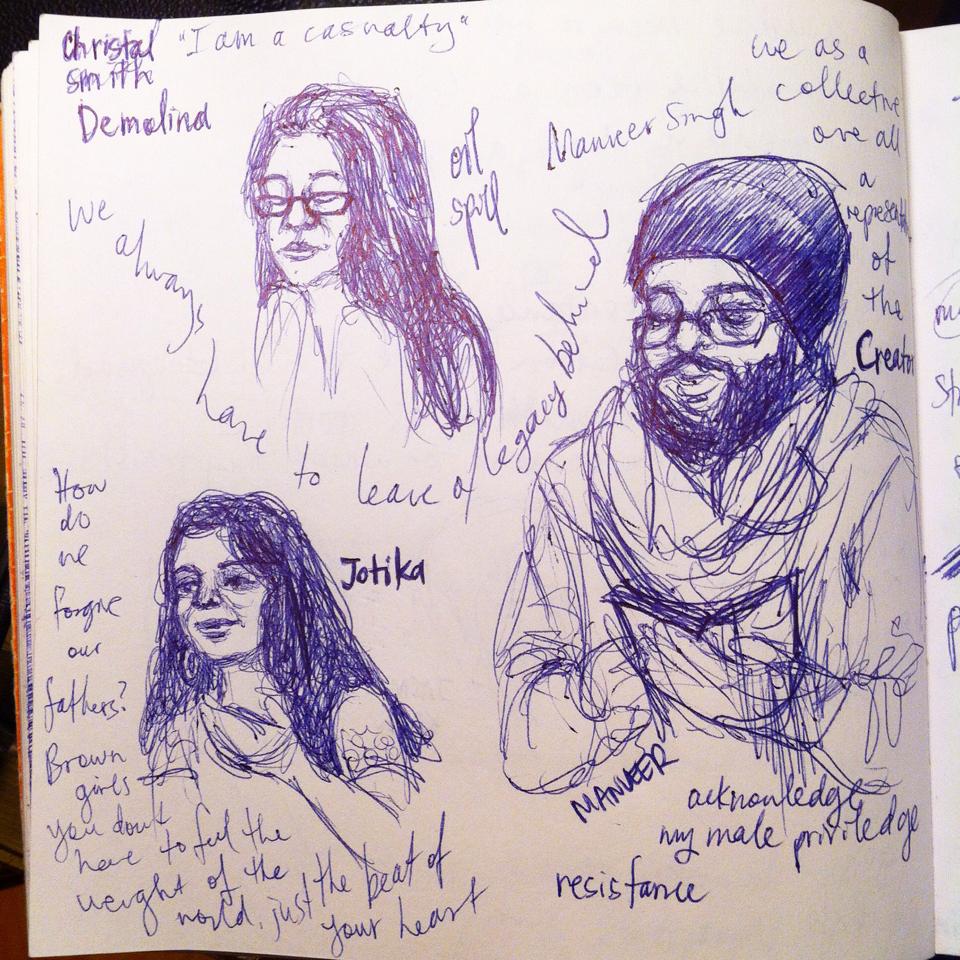 Christal "I am a casualty"
smithe
Demalind
oil
spill
We always have to leave a legacy behind
Manveer Singh
we as a
collective
are all
a
of
the
Creator
How
do
we
forgive
our
fathers?
Brown
girls
you don't
have to feel the
weight of the
world, just the beat of
your heart
Jotika
MANVEER
acknowledge
my male priviledge
resistance